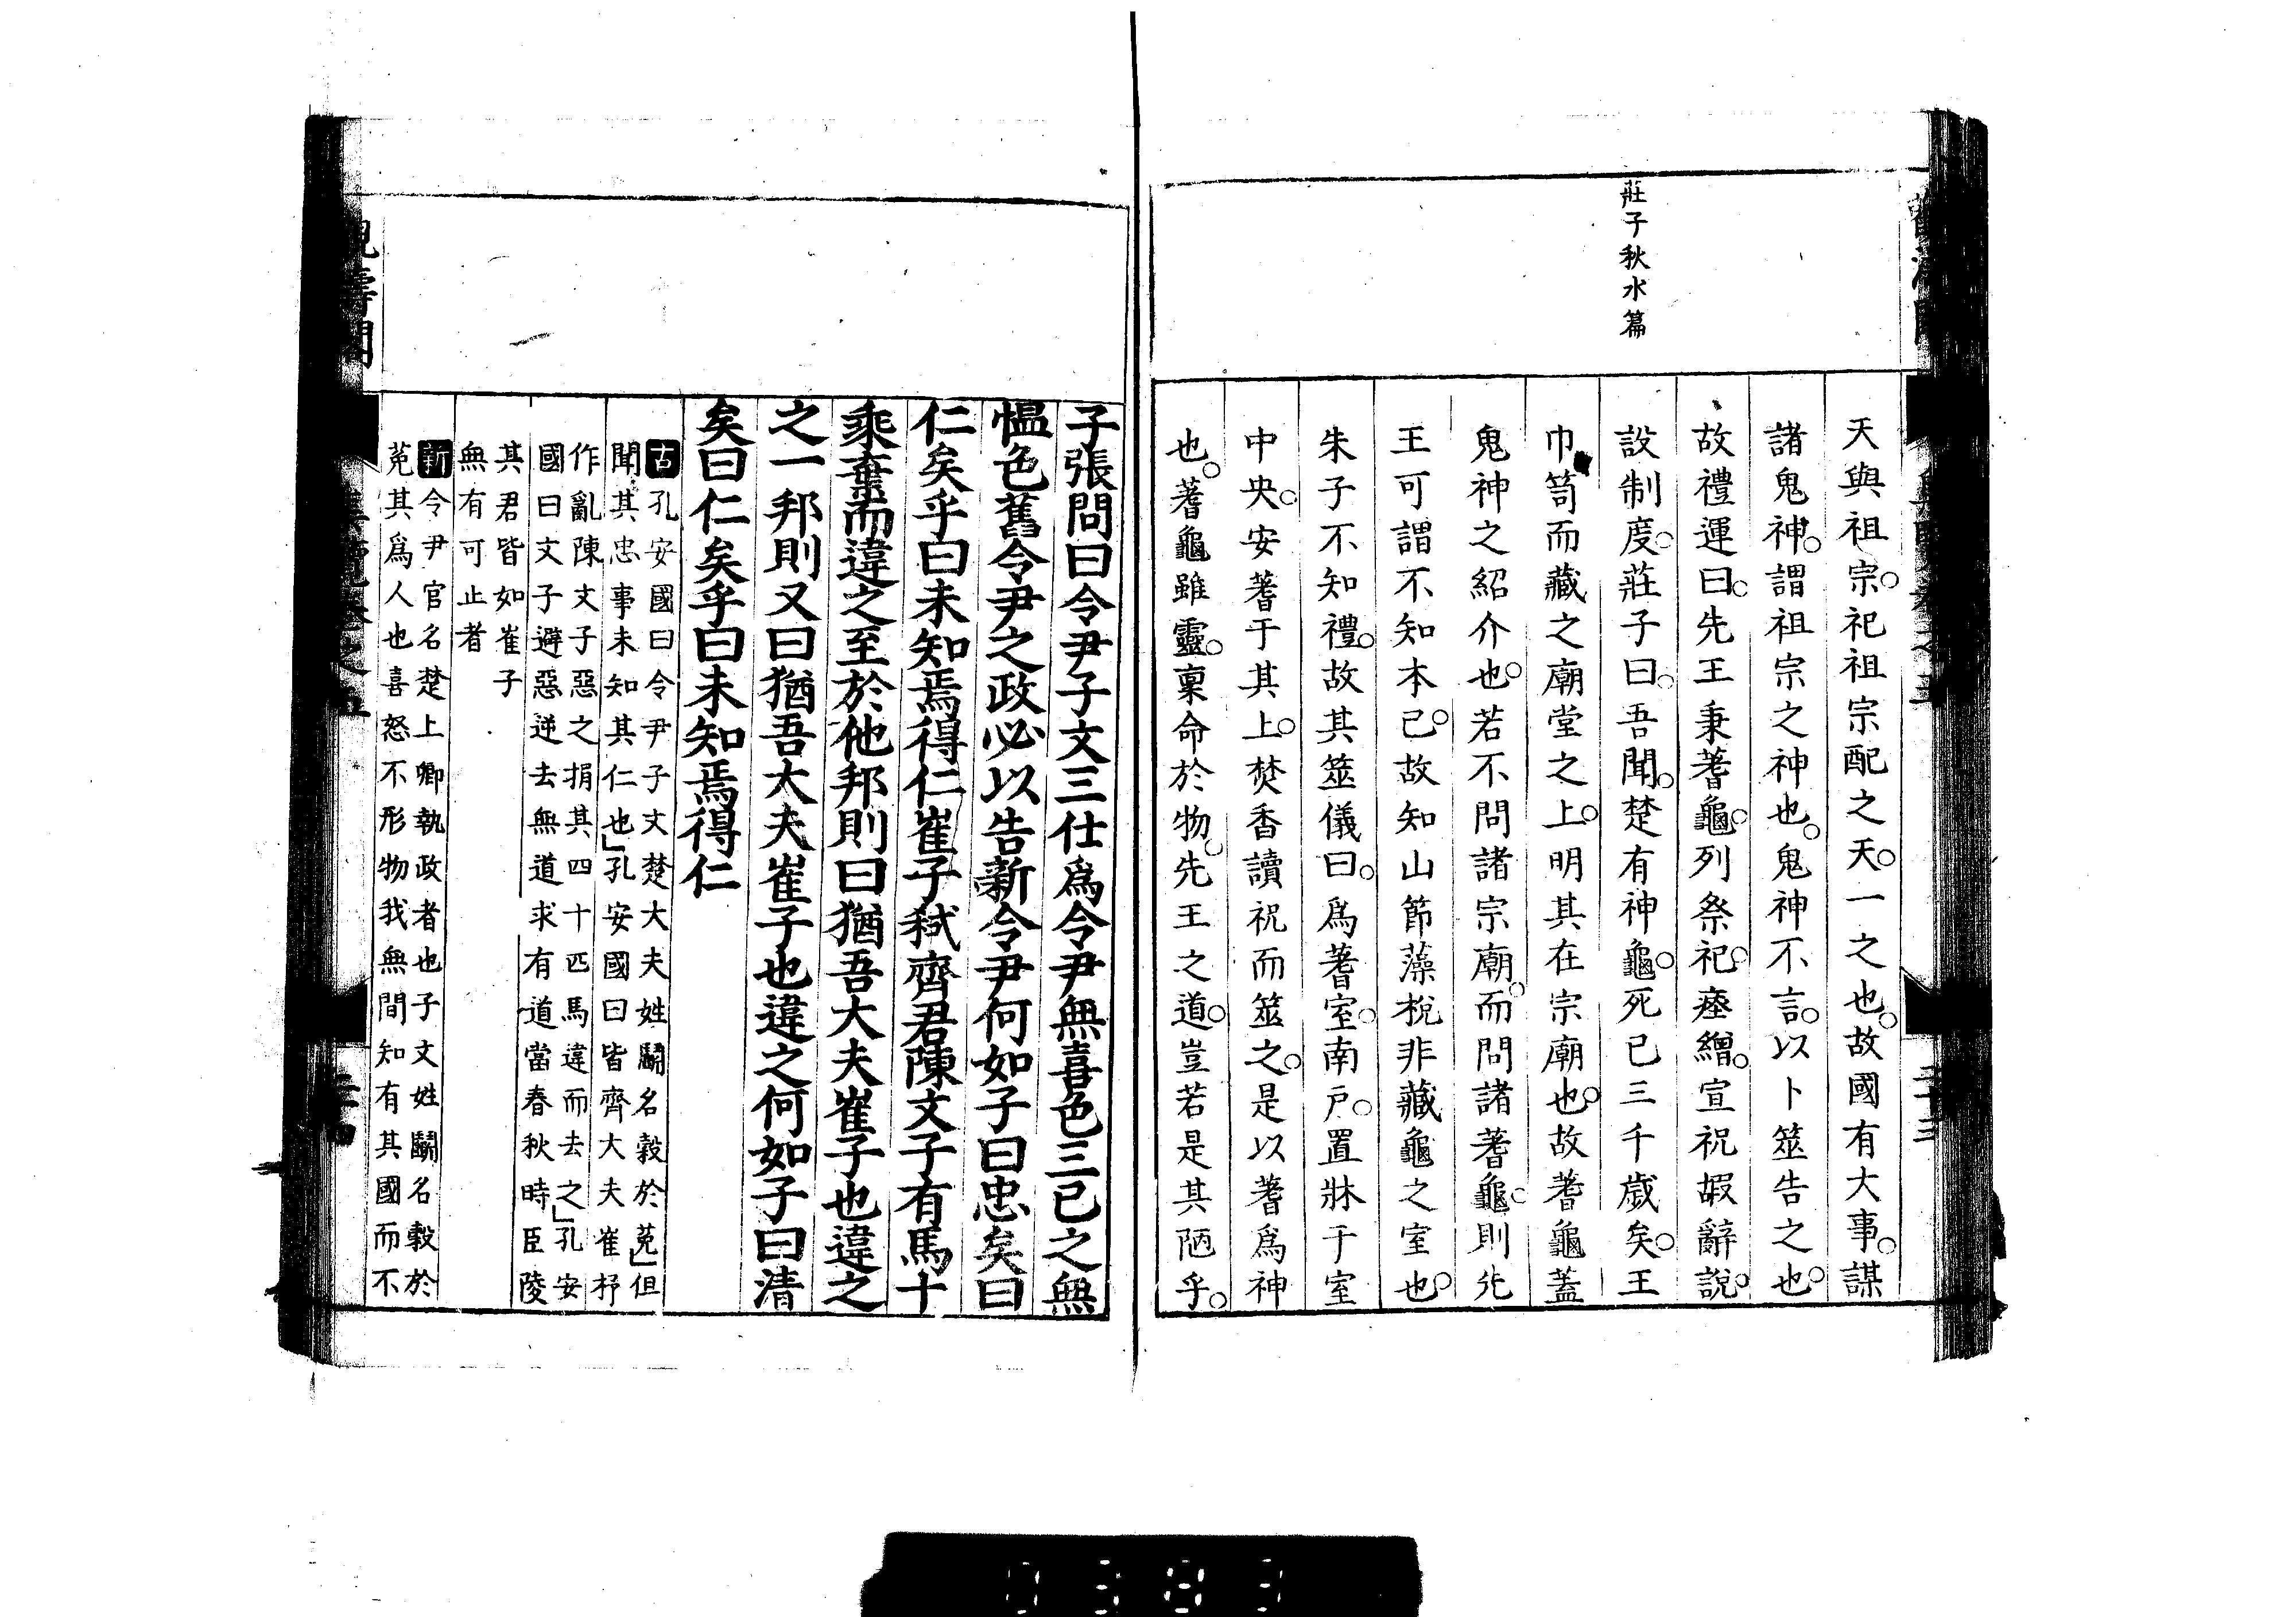 莊子秋水篇
天與祖宗。祀祖宗配之天。一之也。故國有大事。謀
諸鬼神。謂祖宗之神也。鬼神不言。以卜筮告之也。
故禮運曰。先王秉蓍龜。列祭祀。瘞繒。宣祝嘏辭說。
設制度。莊子曰。吾聞。楚有神龜。死已三千歲矣。王
巾笥而藏之廟堂之上。明其在宗廟也。故蓍龜蓋
鬼神之紹介也。若不問諸宗廟。而問諸蓍龜。則先
王可謂不知本已。故知山節藻梲非藏龜之室也。
朱子不知禮。故其筮儀曰。爲蓍室。南戶。置牀于室
中央。安蓍于其上。焚香讀祝而筮之。是以蓍爲神
也。蓍龜雖靈。稟命於物。先王之道。豈若是其陋乎。
子張問曰令尹子文三仕爲令尹無喜色三已之無
慍色舊令尹之政必以告新令尹何如子曰忠矣曰
仁矣乎曰未知焉得仁崔子弒齊君陳文子有馬十
乘棄而違之至於他邦則曰猶吾大夫崔子也違之
之一邦則又曰猶吾大夫崔子也違之何如子曰清
矣曰仁矣乎曰未知焉得仁
古孔安國曰令尹子文楚大夫姓鬭名穀於菟」但
聞其忠事未知其仁也」孔安國曰皆齊大夫崔杼
作亂陳文子惡之捐其四十匹馬違而去之」孔安
國曰文子避惡逆去無道求有道當春秋時臣陵
其君皆如崔子
無有可止者
新令尹官名楚上卿執政者也子文姓鬭名穀於
菟其爲人也喜怒不形物我無間知有其國而不